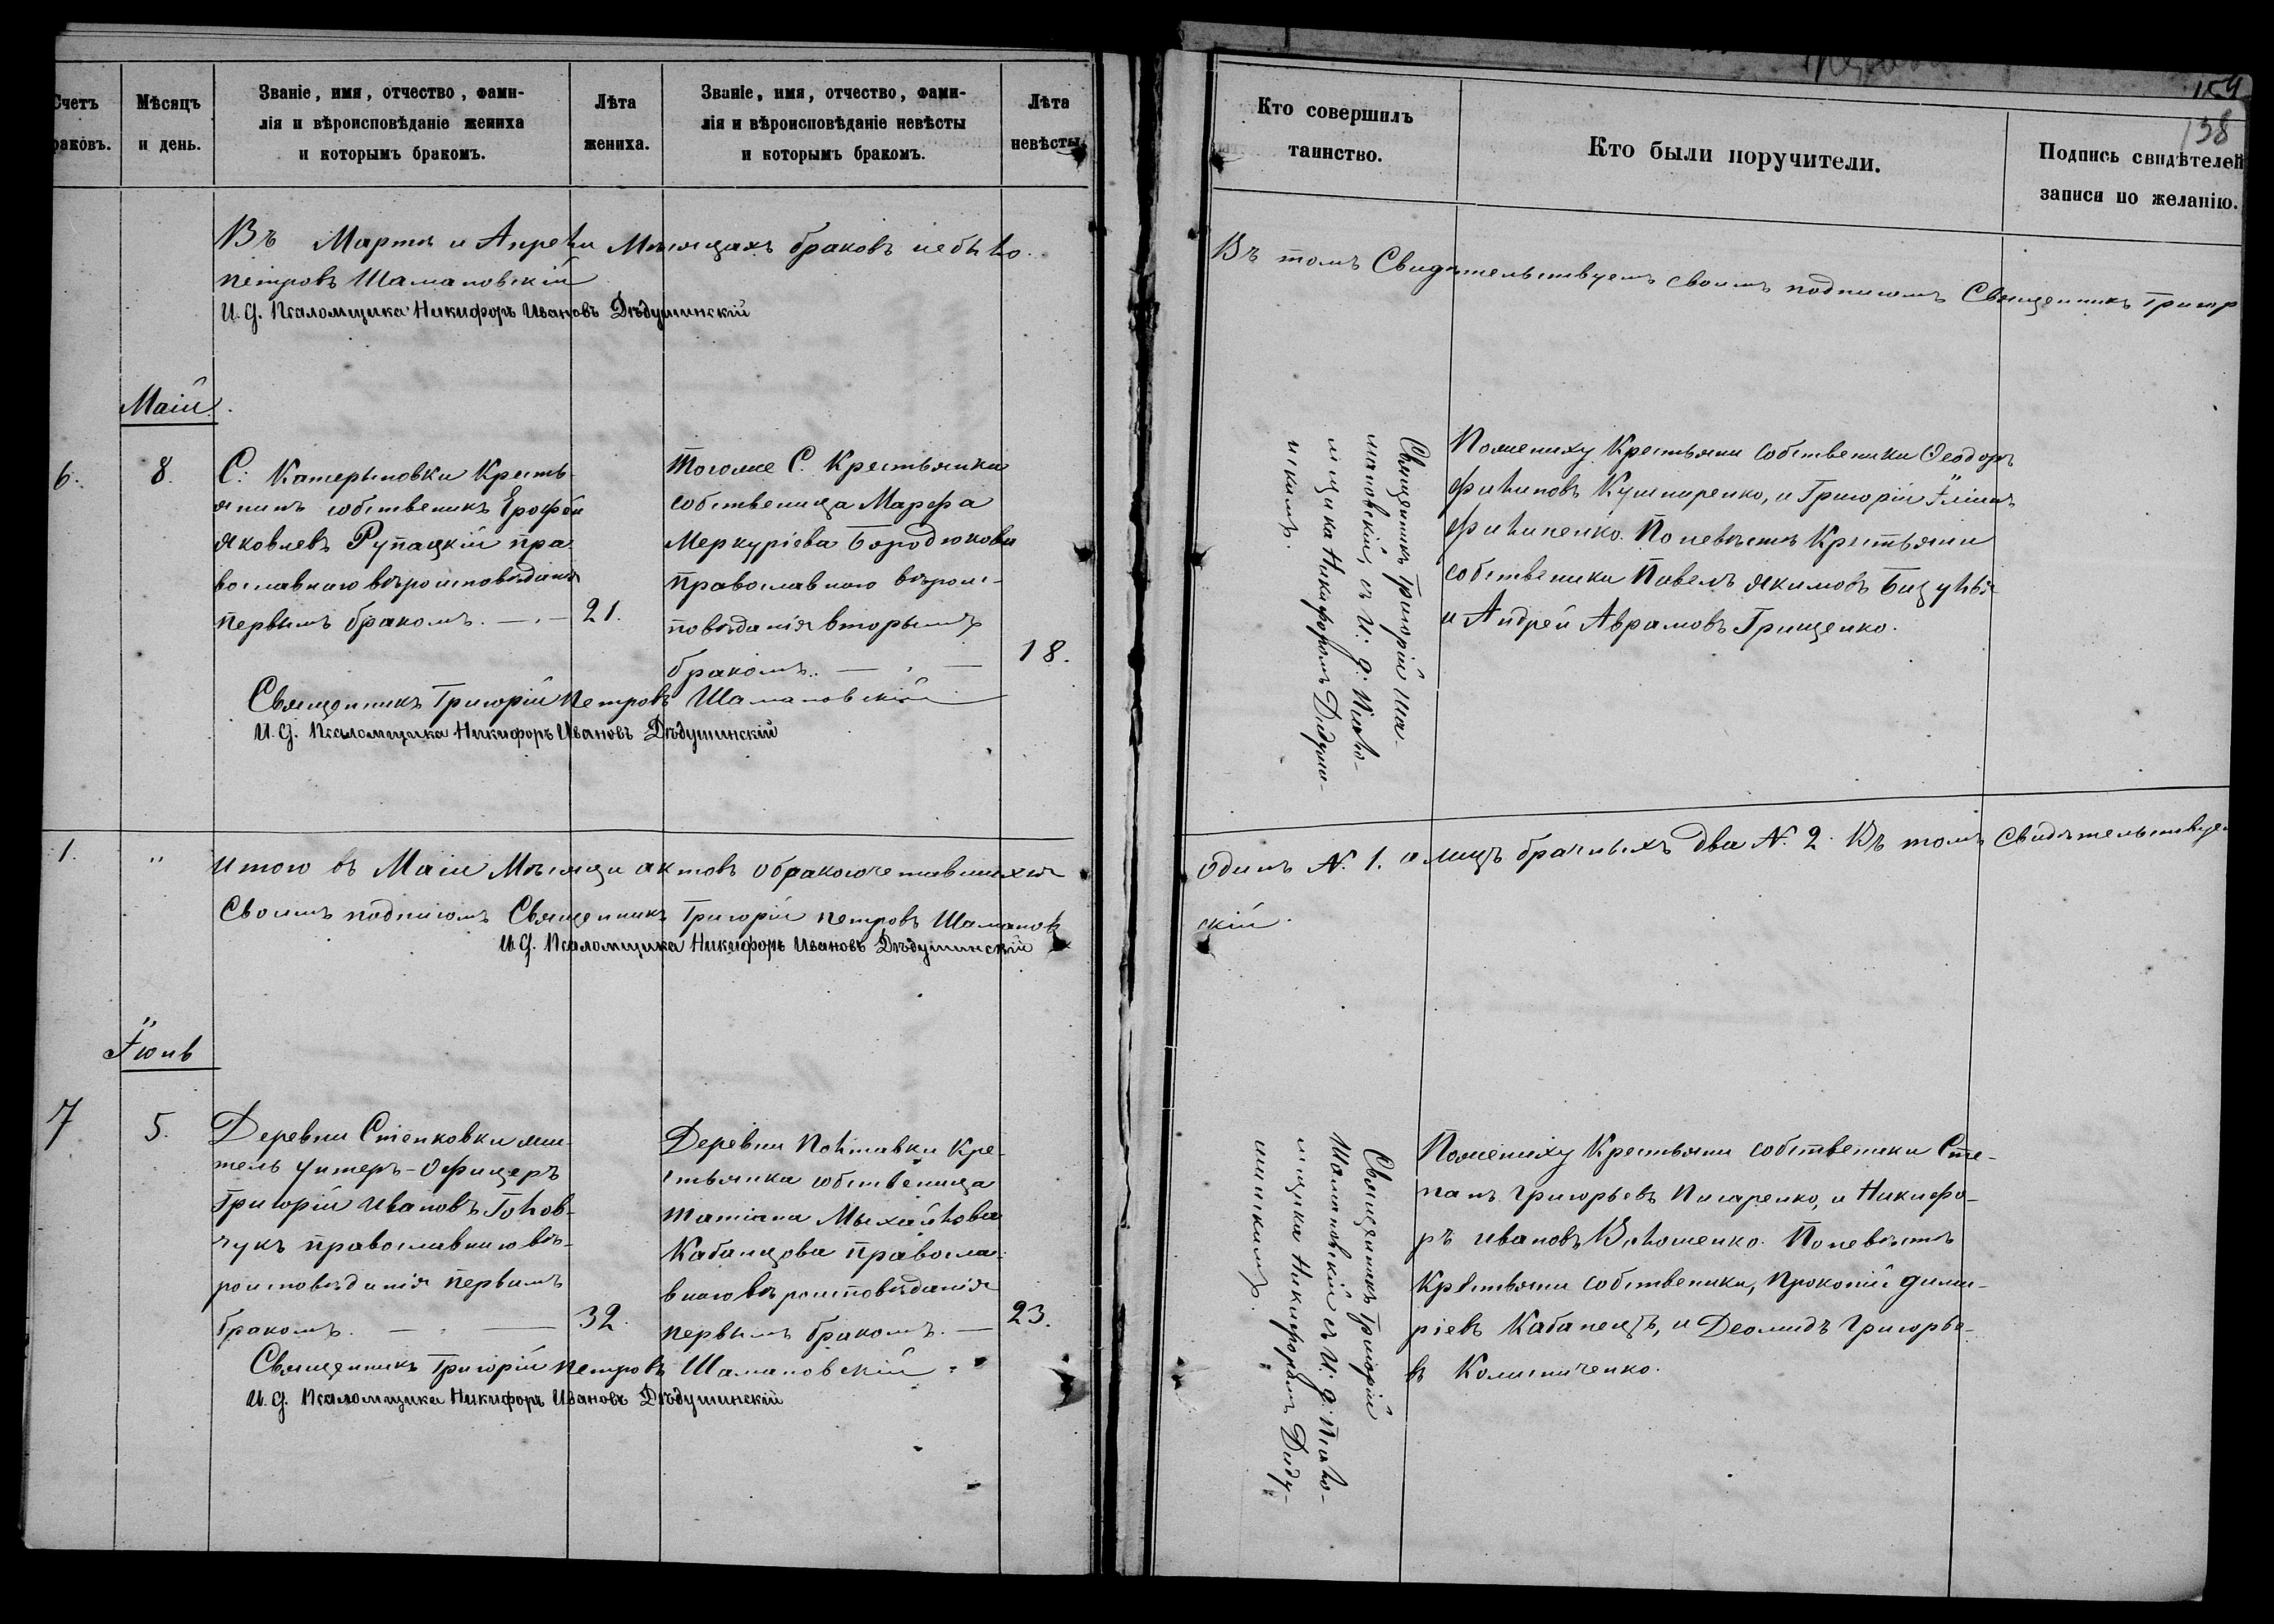 Счетъ
раковъ.
Мѣсяцъ
и день.
Званіе, имя, отчество, фами-
лія и вѣроисповѣданіе жениха
и которымъ бракомъ.
Лѣта
жениха.
Званіе, имя, отчество, фами-
лія и вѣроисповѣданіе невѣсты
и которымъ бракомъ.
Лѣта
невѣсты.
Въ Мартѣ и Апрели Мѣсяцахъ браковъ небыло.
Петровъ Шамановскій
И. д. Псаломщика Никифоръ Ивановъ Дѣдушинскій
Маій.
6.
8.
С: Катерыновки Кресть-
янинъ собственикъ Ерофей
Яковлевъ Рупацкій пра-
вославного вѣроисповѣданія
первымъ бракомъ.
21.
Тогоже С. Крестьянка
собственица Марфа
Меркуріева Бородюкова
Православного вѣроис-
повѣданія вторымъ
бракомъ.
18.
Священникъ Григорій Петровъ Шамановскій
И. д. Псаломщика Никифоръ Ивановъ Дѣдушинскій
1.
"
Итого въ Маіи Мѣсяци актовъ обракосочетавшихся
Своимъ подписомъ Священникъ Григорій Петровъ Шаманов
И. д. Псаломщика Никифоръ Ивановъ Дѣдушинскій
Іюнь
7
5.
Деревни Степковки жи-
тель Унтеръ-Офицеръ
Григорій Ивановъ Голов-
чукъ православного вѣ-
роисповѣданія первымъ
бракомъ.
32.
Деревни Полтавки Кре-
стьянка собственица
Татіана Мыхайлова
Кабанцова Правосла-
вного вѣроисповѣданія
первымъ бракомъ.
23.
Священникъ Григорій Петровъ Шамановскій
И. д. Псаломщика Никифоръ Ивановъ Дѣдушинскій
159
138
Кто совершилъ
таинство.
Кто были поручители.
Подпись свидѣтелей
записи по желанію.
Въ томъ Свидѣтельствуемъ своимъ подписомъ Священникъ Григор
Священникъ Григорій Ша-
мановскій, съ И. д. Псало-
мщика Никифоромъ Дидуши-
нскимъ.
Пожениху Крестьяни собственики Ѳеодоръ
Филиповъ Кушниренко, и Григорій Іліинъ
Филипенко. По невѣстѣ Крестьяни
собственики Павелъ Якимовъ Бицуля
и Андрей Аврамовъ Грищенко.
одинъ №. 1. а лицъ брачныхъ два №. 2. Въ томъ Свидѣтельствуе
скій.
Священникъ Григорій
Шамановскій съ И. д. Псало-
мщика Никифоромъ Диду-
шинскимъ.
Пожениху Крестьяни собственики Сте-
панъ Григорьевъ Писаренко, и Никифо-
ръ Ивановъ Волошенко. По невѣстѣ
Крестьяни собственики, Прокопій Дими-
ріевъ Кабанецъ, и Деомидъ Григорье-
въ Колисниченко.